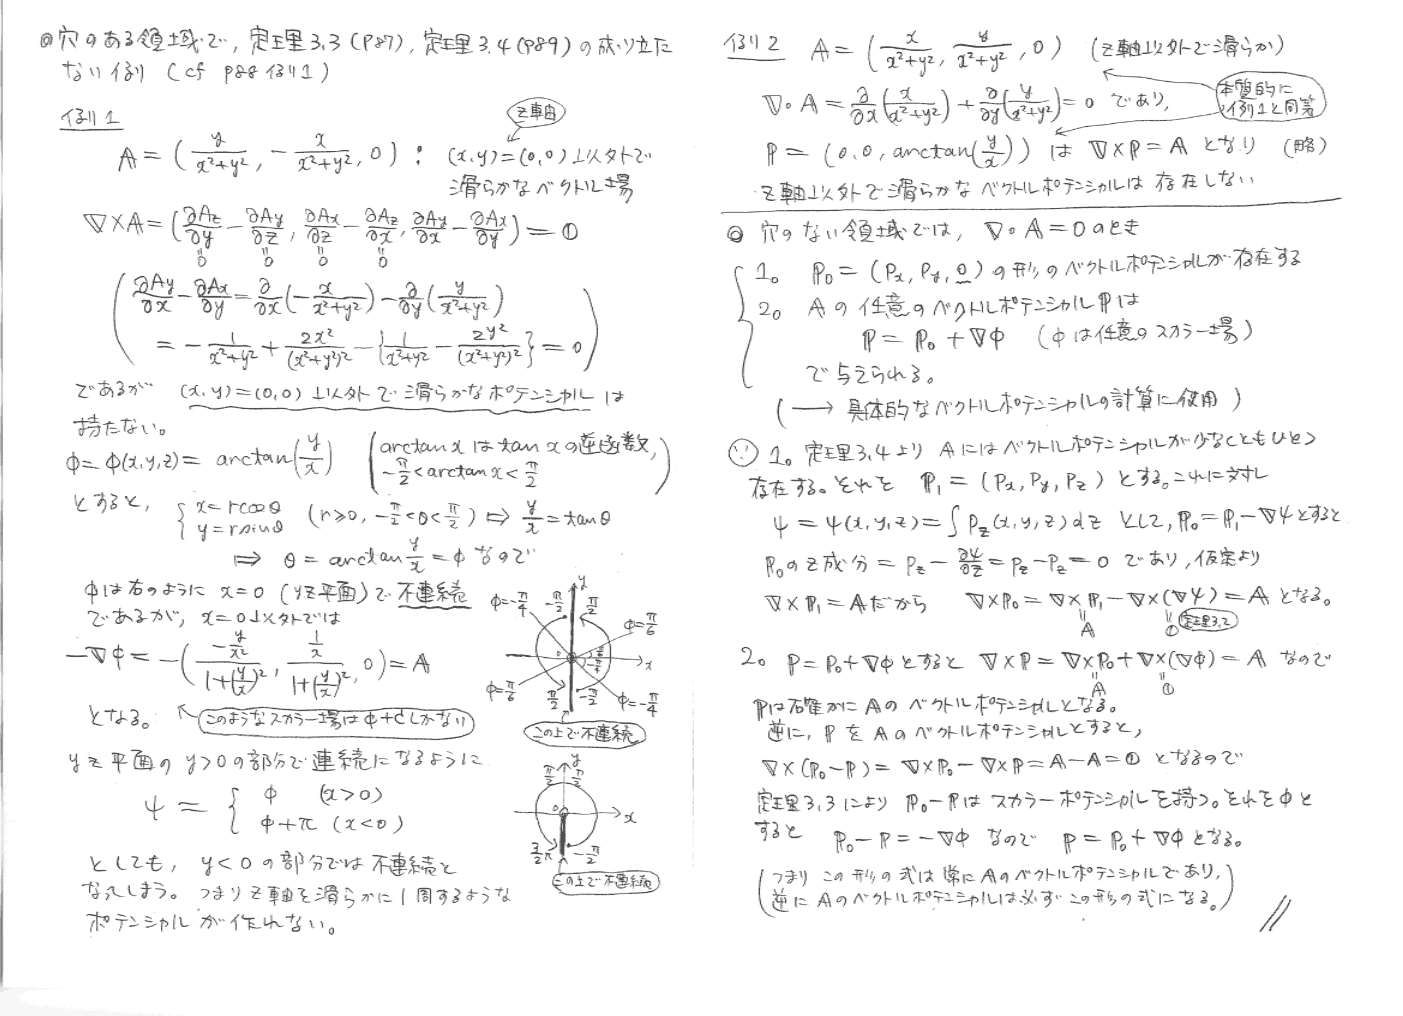 ◎穴のある領域で, 定理3.3(P87), 定理3.4(P89)の成り立た
ない例 (cf P88 例1)
例1
z軸
A = ( y/(x²+y²), -x/(x²+y²), 0 ) : (x,y)=(0,0)以外で
滑らかなベクトル場
∇×A = ( ∂Az/∂y - ∂Ay/∂z, ∂Ax/∂z - ∂Az/∂x, ∂Ay/∂x - ∂Ax/∂y ) = 0
0 0 0 0
( ∂Ay/∂x - ∂Ax/∂y = ∂/∂x(-x/(x²+y²)) - ∂/∂y(y/(x²+y²))
= -1/(x²+y²) + 2x²/(x²+y²)² - { 1/(x²+y²) - 2y²/(x²+y²)² } = 0 )
であるが (x,y)=(0,0)以外で滑らかなポテンシャルは
持たない。
φ=φ(x,y,z)= arctan(y/x) ( arctan x は tan x の逆函数, -π/2 < arctan x < π/2 )
とすると, { x=rcosθ y=rsinθ (r≥0, -π/2<θ<π/2) ⇒ y/x = tanθ
⇒ θ = arctan y/x = φ なので
φは右のように x=0 (yz平面)で不連続
であるが, x=0以外では
-∇φ = -( (-y/x²)/(1+(y/x)²), (1/x)/(1+(y/x)²), 0 ) = A
となる。 このようなスカラー場はφ+Cしかない
y φ=-π/4 -π/2 π/2 φ=π/6
0 π/6 -π/4 x
φ=π/6 π/2 -π/2 φ=-π/4
この上で不連続
yz平面の y>0の部分で連続になるように
ψ = { φ (x>0)
φ+π (x<0)
y π/2 π/2
0 x
3/2π -π/2
この上で不連続
としても, y<0の部分では不連続と
なってしまう。つまりz軸を滑らかに1周するような
ポテンシャルが作れない。
例2 A = ( x/(x²+y²), y/(x²+y²), 0 ) (z軸以外で滑らか)
∇・A = ∂/∂x(x/(x²+y²)) + ∂/∂y(y/(x²+y²)) = 0 であり,
本質的に
例1と同等
P = (0, 0, arctan(y/x)) は ∇×P = A となり (略)
z軸以外で滑らかなベクトルポテンシャルは存在しない
◎ 穴のない領域では, ∇・A=0のとき
1。 P₀ = (Px, Py, 0) の形のベクトルポテンシャルが存在する
2。 Aの任意のベクトルポテンシャルPは
P = P₀ + ∇φ (φは任意のスカラー場)
で与えられる。
(→ 具体的なベクトルポテンシャルの計算に使用)
∵ 1。 定理3.4より Aにはベクトルポテンシャルが少なくともひとつ
存在する。それを P₁ = (Px, Py, Pz) とする。これに対し
ψ = ψ(x,y,z) = ∫Pz(x,y,z)dz として, P₀=P₁-∇ψとすると
P₀のz成分 = Pz - ∂ψ/∂z = Pz - Pz = 0 であり, 仮定より
∇×P₁ = Aだから ∇×P₀ = ∇×P₁ - ∇×(∇ψ) = A となる。
A 0 定理3.2
2。 P = P₀+∇φ とすると ∇×P = ∇×P₀ + ∇×(∇φ) = A なので
A 0
Pは確かにAのベクトルポテンシャルとなる。
逆に, PをAのベクトルポテンシャルとすると,
∇×(P₀-P) = ∇×P₀ - ∇×P = A-A = 0 となるので
定理3.3により P₀-Pはスカラーポテンシャルを持つ。それをφと
すると P₀-P = -∇φ なので P = P₀+∇φ となる。
(つまり この形の式は常にAのベクトルポテンシャルであり,
逆に Aのベクトルポテンシャルは必ずこの形の式になる。) //